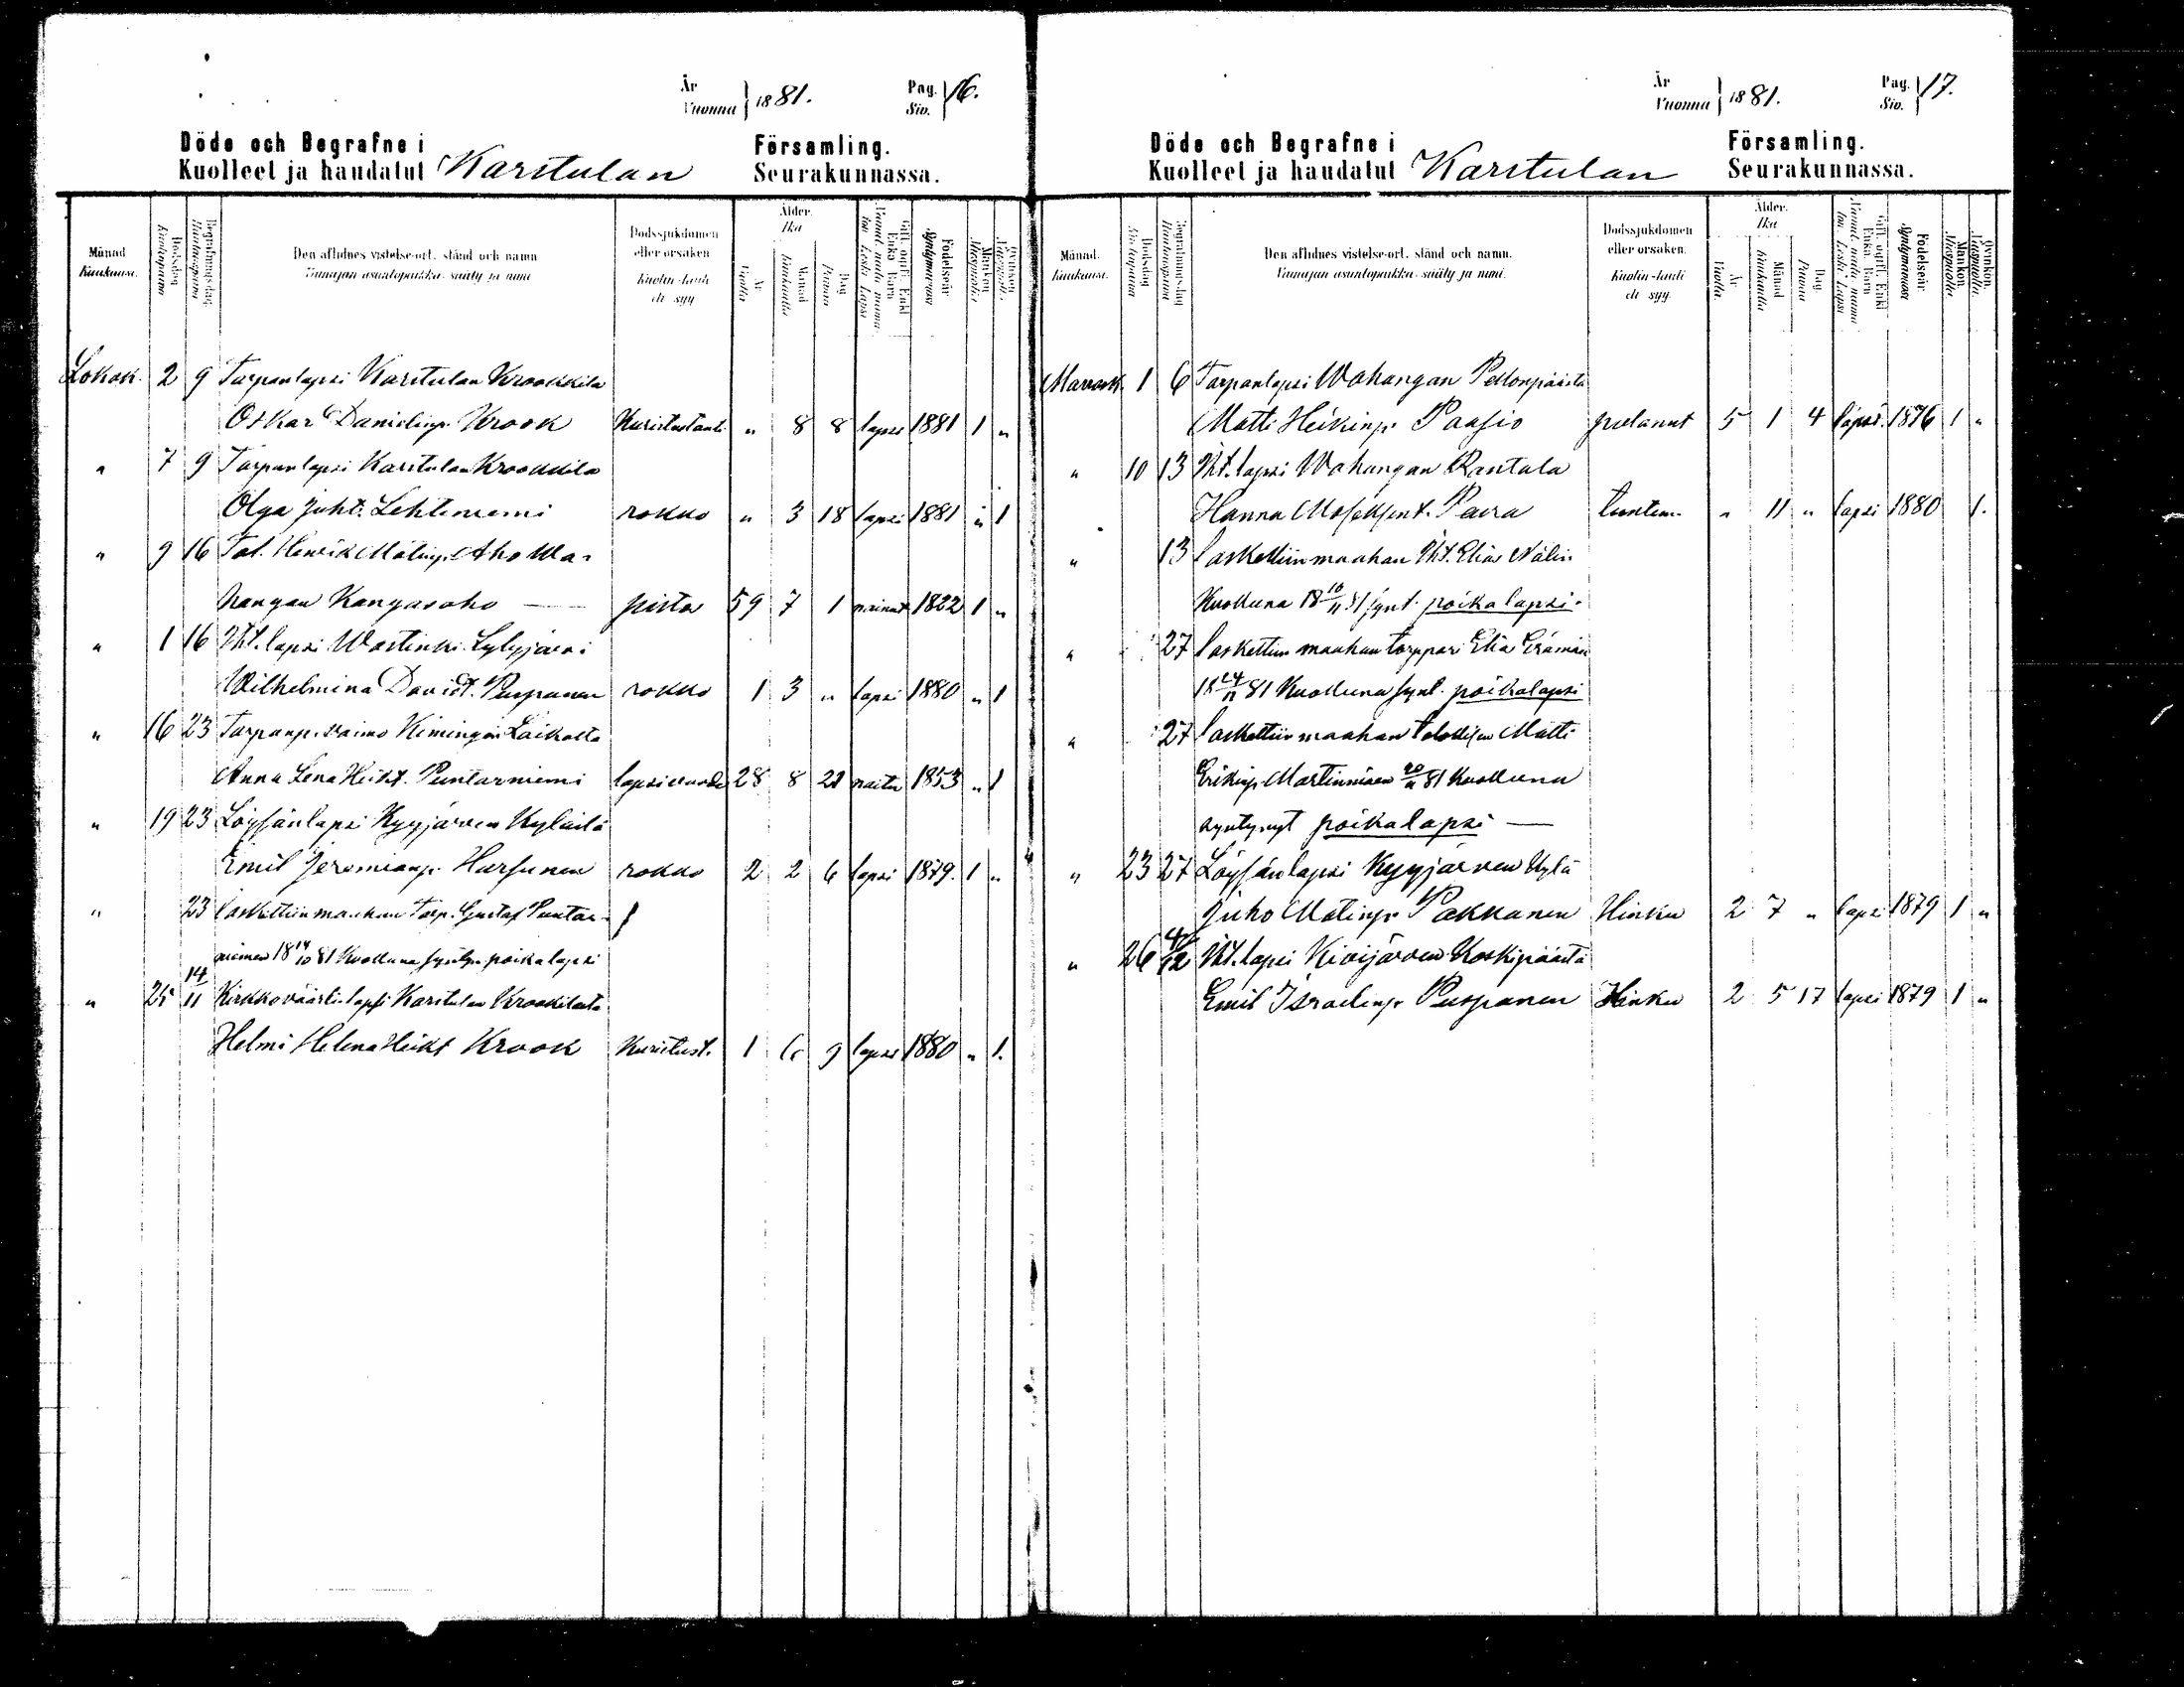 År
Vuonna } 1881.
Pag.
Siv. } 16.
Döde och Begrafne i Församling.
Kuolleet ja haudatut Karstulan Seurakunnassa.
Månad Kuukausi.
Dödsdag Kuolinpäivä
Begrafningsdag Hautauspäivä
Den aflidnes vistelse-ort, stånd och namn
Vainajan asuntopaikka, sääty ja nimi
Dödssjukdomen eller orsaken.
Kuolin-tauti eli syy
Ålder. Ikä
År Vuotta
Månad Kuukautta
Dag Päivää
Födelseår Syntymävuosi
Mankön Miespuolia
Qvinkön Vaimopuolia
Lokak. 2 9 Torpanlapsi Karstulan Krookkila
Oskar Danielinp. Krook Kuristustauti " 8 8 lapsi 1881 1 "
" 7 9 Torpanlapsi Karstulan Krookkila
Olga Juht. Lehteniemi rokko " 3 18 lapsi 1881 " 1
" 9 16 Tal. Henrik Matinp. Aho Wa-
hangan Kangasaho — pistos 59 7 1 nainut 1822 1 "
" 1 16 Iht. lapsi Wastinki Lylyjärvi
Wilhelmina Davidt. Purpanen rokko 1 3 " lapsi 1880 " 1
" 16 23 Torpanp. vaimo Kimingin
Anna Lena Heikt. Puntarniemi lapsivuode 28 8 21 naitu 1853 " 1
" 19 23 Loysänlapsi Kyyjärven Kylästä
Emil Jeremianp. Hursunen rokko 2 2 6 lapsi 1879. 1 "
" 23 laskettiin maahan Torp. Gustaf Puntar-
niemen 18 14/10 81 Kuolluna syntyn. poikalapsi
" 25 14/11 Kirkkoväärtin lapsi Karstulan Krookilasta
Helmi Helena Heikt Krook Kuristust. 1 6 9 lapsi 1880 " 1.
År
Vuonna } 1881.
Pag.
Siv. } 17.
Döde och Begrafne i Församling.
Kuolleet ja haudatut Karstulan Seurakunnassa.
Månad. Kuukausi.
Dödsdag Kuolinpäivä
Begrafningsdag Hautauspäivä
Den aflidnes vistelse-ort, stånd och namn.
Vainajan asuntopaikka, sääty ja nimi.
Dödssjukdomen eller orsaken.
Kuolin-tauti eli syy.
Ålder. Ikä
År Vuotta
Månad Kuukautta
Dag. Päivää
Födelseår Syntymävuosi
Mankön Miespuolia
Qvinkön. Vaimopuolia
Marrask. 1 6 Torpanlapsi Wahangan Pellonpäästä
Matti Heikinp. Paasio palanut 5 1 4 lapsi. 1876 1 "
" 10 13 Iht. lapsi Wahangan Rantala
Hanna Paera tuntem. " 11 " lapsi 1880 1.
" 13 laskettiin maahan Iht. Elias Nälin
Kuolluna 18 10/11 81 synt. poikalapsi.
" 27 laskettiin maahan torppari Elia Erämän
18 24/11 81 Kuolluna synt. poikalapsi
" 27 laskettiin maahan talollisen Matti
Erikinp. Martinmäen 20/11 81 Kuolluna
syntynyt poikalapsi —
" 23 27 Löysänlapsi Kyyjärven Kylä
Juho Matinp. Pakkanen Hinku 2 7 " lapsi 1879 1 "
" 26 4/12 Iht. lapsi Kivijärven Koskipäästä
Emil Israelinp. Purpanen Hinku 2 5 17 lapsi 1879 1 "